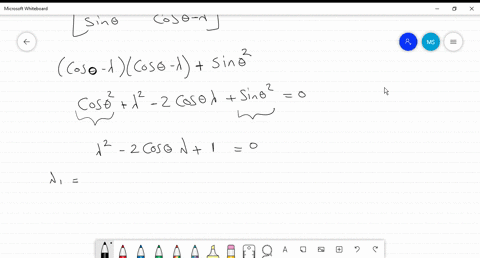 Microsoft Whiteboard
Sinθ Cosθ-λ
MS
(Cosθ-λ)(Cosθ-λ) + Sinθ²
Cosθ² + λ² - 2 Cosθ λ + Sinθ² = 0
λ² - 2 Cosθ λ + 1 = 0
λ₁ =